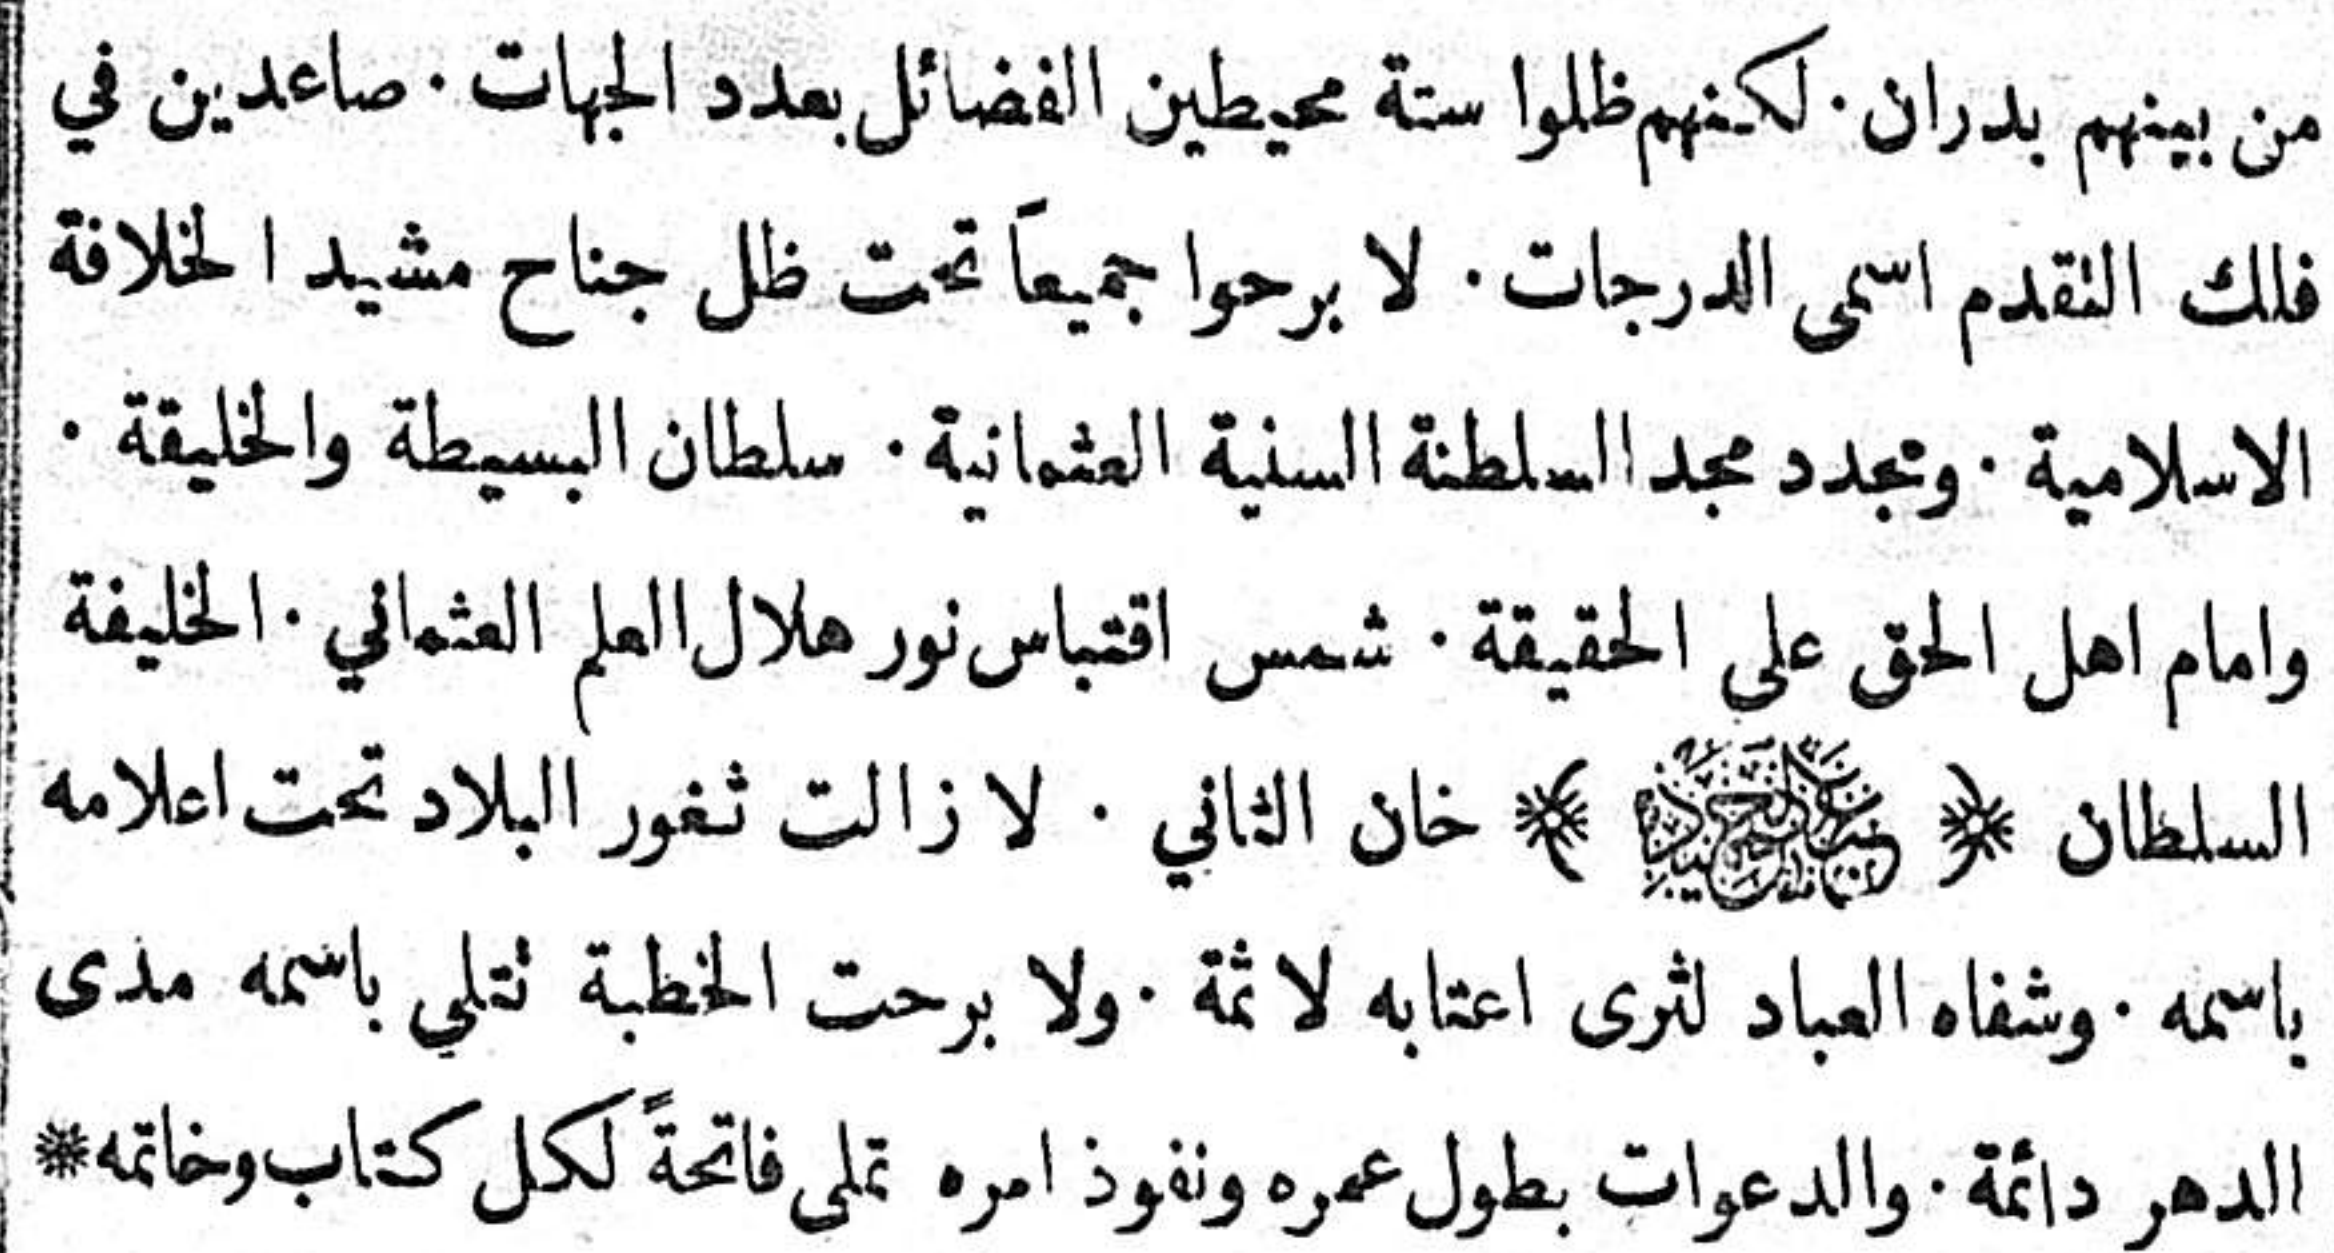 من بينهم بدران · لكنهم ظلوا ستة محيطين الفضائل بعدد الجهات · صاعدين في
فلك التقدم اسمى الدرجات · لا برحوا جميعاً تحت ظل جناح مشيد الخلافة
الاسلامية · وتجدد مجد السلطنة السنية العثمانية · سلطان البسيطة والخليقة ·
وامام اهل الحق على الحقيقة · شمس اقتباس نور هلال العلم العثماني · الخليفة
السلطان ﴿ عبد الحميد ﴾ خان الثاني · لا زالت ثغور البلاد تحت اعلامه
باسمه · وشفاه العباد لثرى اعتابه لاثمة · ولا برحت الخطبة تتلي باسمه مدى
الدهر دائمة · والدعوات بطول عمره ونفوذ امره تملى فاتحةً لكل كتاب وخاتمه *